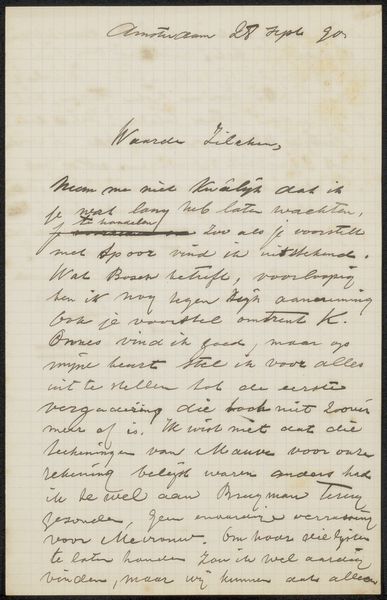 Amsterdam 28 Sept 90
Waarde Zilcken,
Neem me niet kwalijk dat ik
je wat lang heb laten wachten,
te handelen
Zoo als je voorstelt
met Spoor vind ik uitstekend.
Wat Bosch betreft, voorloopig
ben ik nog tegen zijn aanneming
Ook je voorstel omtrent K.
vind ik goed, maar op
mijne beurt stel ik voor alles
uit te stellen tot de eerste
vergadering die niet zoover
meer af is. Ik wist niet dat die
teekeningen van Mauve voor onze
rekening belijst waren anders had
ik ze wel aan Brugman terug
gezonden, geen verrassing
voor Mevrouw. Om
te laten houden zou ik wel aardig
vinden, maar wij kunnen dat alleen